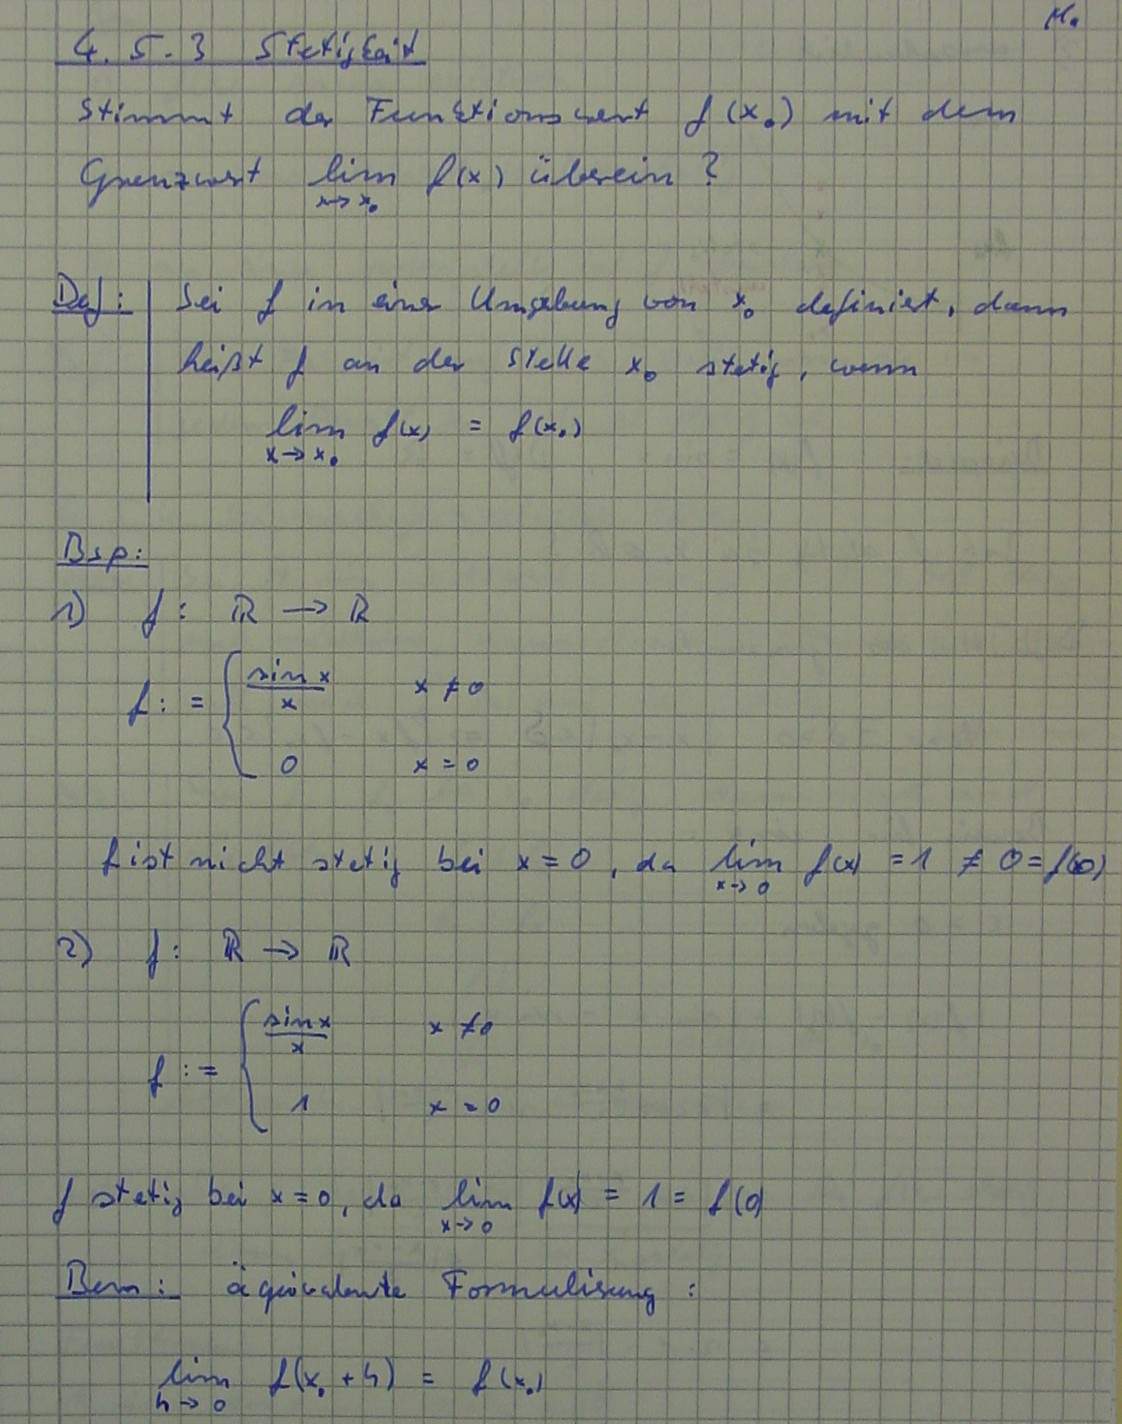 M.
4.5.3 Stetigkeit
Stimmt der Funktionswert f(x₀) mit dem
Grenzwert lim f(x) überein?
x→x₀
Def: Sei f in einer Umgebung von x₀ definiert, dann
heißt f an der Stelle x₀ stetig, wenn
lim f(x) = f(x₀)
x→x₀
Bsp:
1) f: ℝ → ℝ
f := { sin x / x    x ≠ 0
0    x = 0
f ist nicht stetig bei x = 0, da lim f(x) = 1 ≠ 0 = f(0)
x→0
2) f: ℝ → ℝ
f := { sin x / x    x ≠ 0
1    x = 0
f stetig bei x = 0, da lim f(x) = 1 = f(0)
x→0
Bem: äquivalente Formulierung:
lim f(x₀ + h) = f(x₀)
h→0